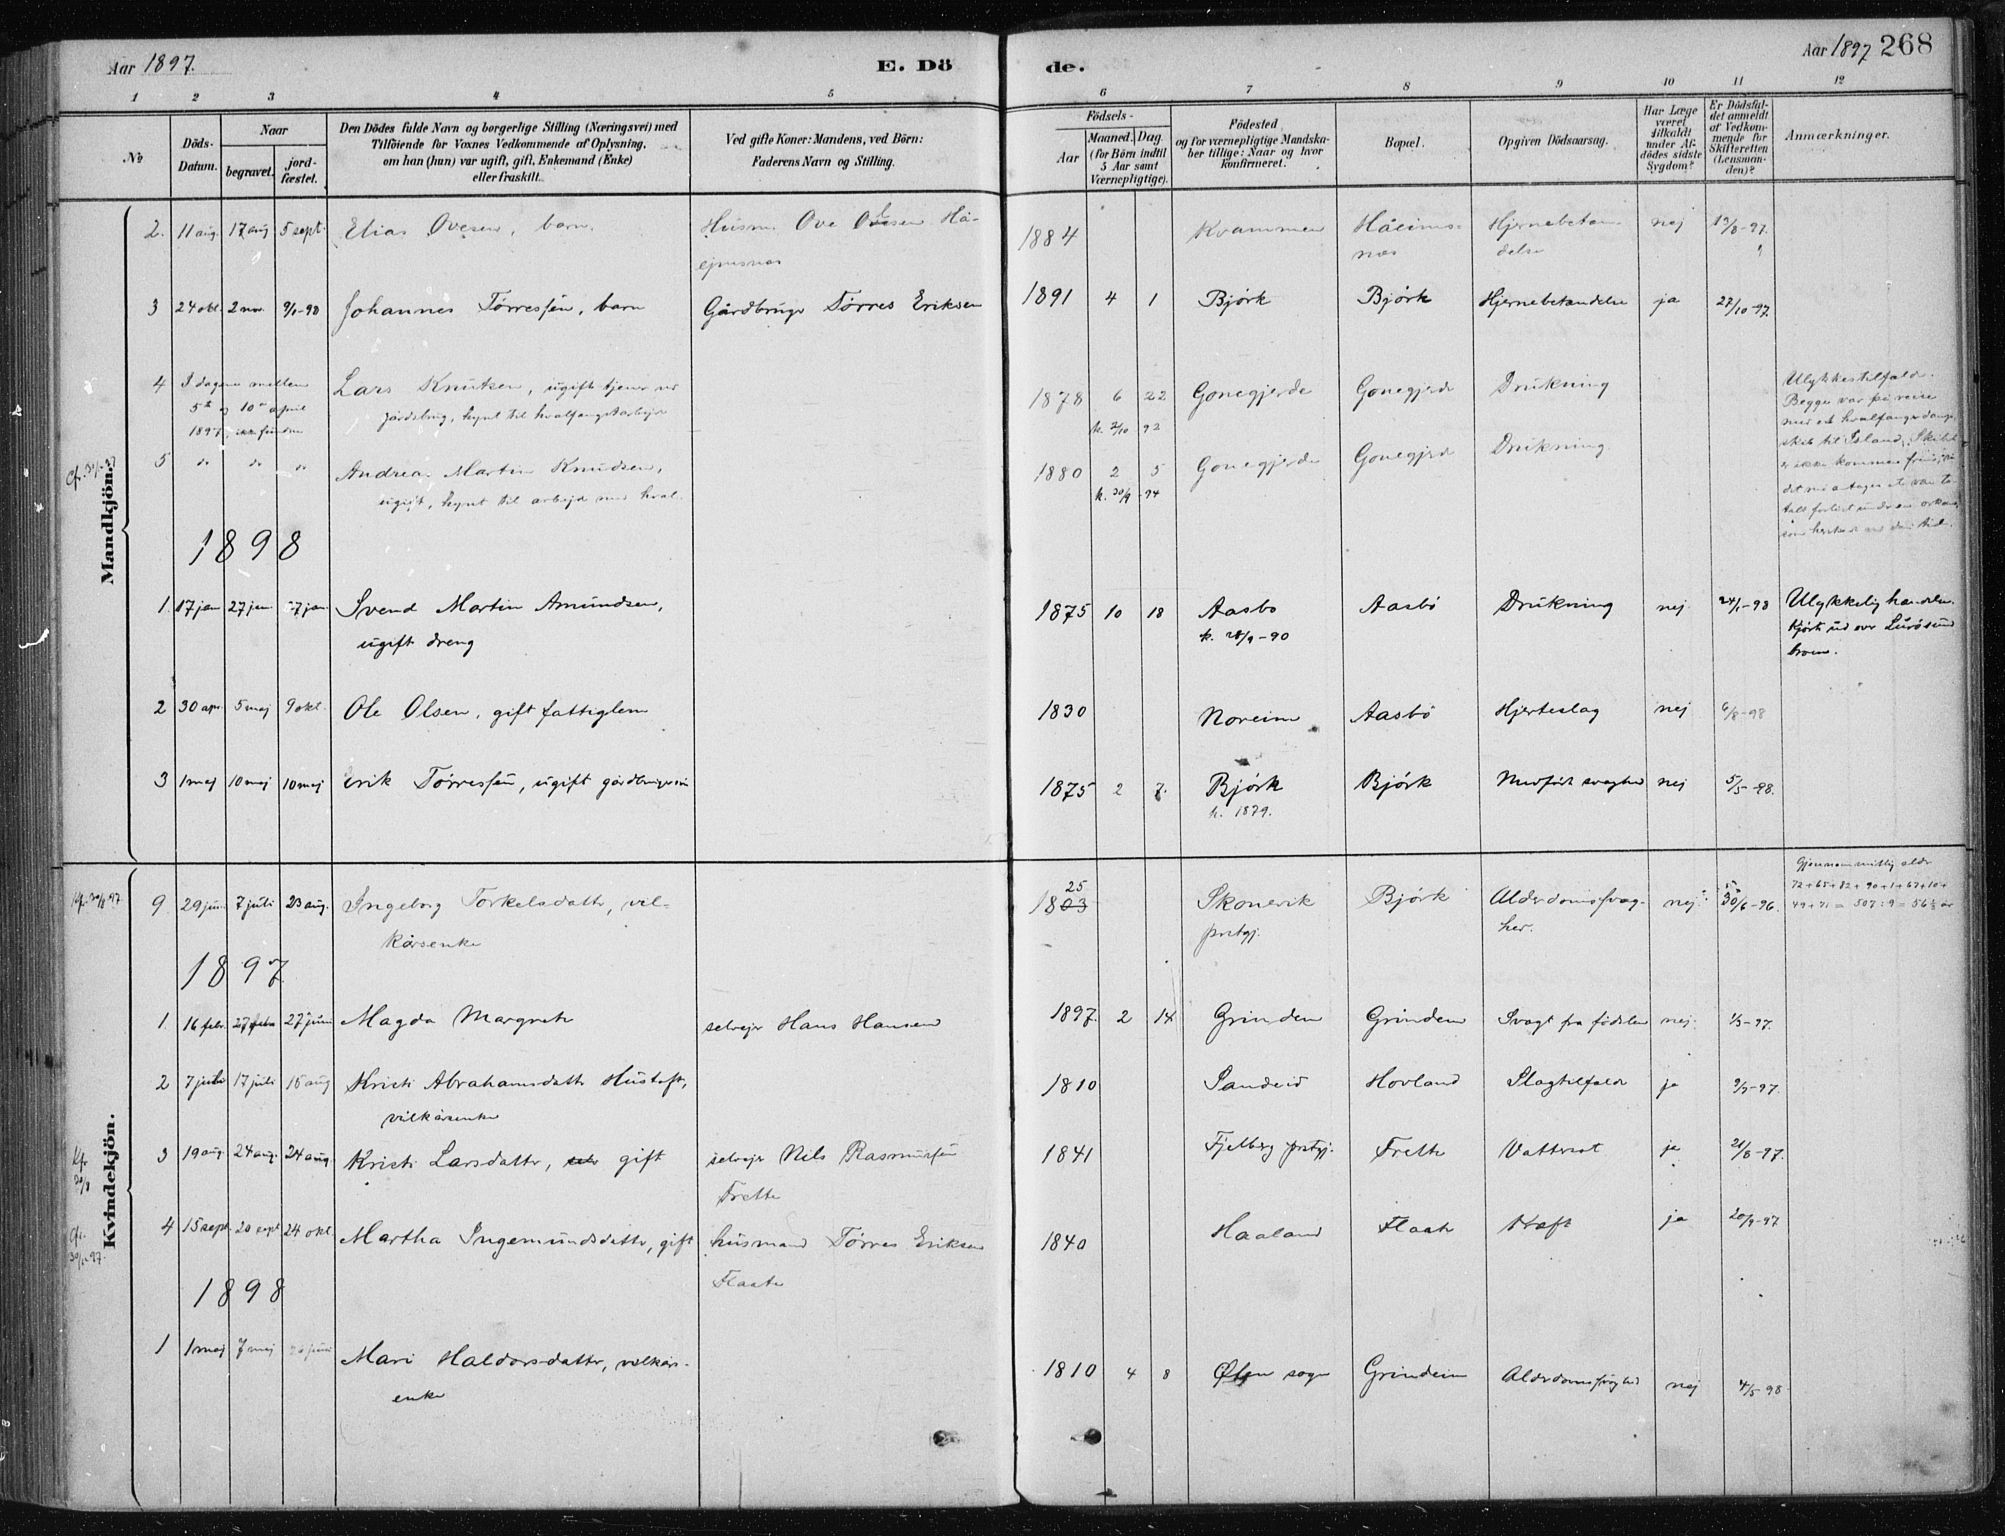 Aar 1897.
E. Dö
de.
Aar 1897 268
1 2 3 4 5 6 7 8 9 10 11 12
No
Döds-Datum.
Naar
begravet.
jord-fæstet.
Den Dödes fulde Navn og borgerlige Stilling (Næringsvei) med
Tilföiende for Voxnes Vedkommende af Oplysning,
om han (hun) var ugift, gift, Enkemand (Enke)
eller fraskilt.
Ved gifte Koner: Mandens, ved Börn:
Faderens Navn og Stilling.
Födsels-
Aar
Maaned. Dag.
(for Børn indtil
5 Aar samt
Værnepligtige).
Födested
og for værnepligtige Mandska-
ber tillige: Naar og hvor
konfirmeret.
Bopæl.
Opgiven Dödsaarsag.
Har Læge
været
tilkaldt
under Af-
dödes sidste
Sygdom?
Er Dödsfal-
det anmeldt
af Vedkom-
mende for
Skifteretten
(Lensman-
den)?
Anmærkninger.
Mandkjön.
2. 11 aug. 17 aug 5 sept. Elias Ovesen, barn. Husm. Ove Olsen Hå- 1884 Kvammen Håeims- Hjernebetæn- nej 13/8-97.
ejmsnæs næs delse
3 24 okt. 2 nov. 9/1-98 Johannes Tørressen, barn Gårdbruger Tørres Eriksen 1891 4 1 Bjørk Bjørk Hjernebetændelse ja 27/10-97.
4 I dagene mellem Lars Knutsen, ugift tjener ved 1878 6 22 Gonegjerde Gonegjerde Drukning Ulykkestilfælde.
5te og 10de april gårdsbrug, hyret til hvalfangstarbejde k. 2/10 92 Begge var på reise
1897, ikke fundne med et hvalfangerdamp-
skib til Island. Skibet
5 do do do Andreas Martin Knudsen, 1880 2 5 Gonegjerde Gonegjerde Drukning er ikke kommet frem,
ugift, hyret til arbejde med hval. k. 30/9 -94
1898
1. 17 jan 27 jan 27 jan Svend Martin Amundsen, 1875 10 18 Aasbø Aasbö Drukning nej 24/1-98 Ulykkelig hændelse.
ugift dreng k. 28/9-90 Kjørte ud over Lurösund
broen.
2 30 apr. 5 maj 9 okt. Ole Olsen, gift fattiglem 1830 Noreim Aasbö Hjerteslag nej 6/8-98
3 1 maj 10 maj 10 maj Erik Tørressen, ugift gårdbrugersøn 1875 2 7. Bjørk Bjørk Medfødt svaghed nej 5/5-98.
k. 1879.
Kvindekjön.
Gjennomsnitlig alder
72+65+82+90+1+67+10+
9. 29 jun. 7 juli 23 aug. Ingeborg Torkelsdatter, vil- 1803 25 Skonevik Bjørk Alderdomssvag- nej. 30/6-96. 49+71 = 507:9 = 56 1/3 år
kårsenke prstgj. hed.
1897
1. 16 febr. 27 febr 27 juni Magda Margrete selvejer Hans Hansen 1897. 2 14 Grinden Grinden Svagt fra fødselen nej. 1/3-97.
2 7 juli 17 juli 15 aug Kristi Abrahamsdatter Hustoft, 1810 Sandeid Hovland Slagtilfælde ja 9/7-97.
vilkårsenke
3 19 aug. 24 aug. 24 aug. Kristi Larsdatter, gift selvejer Nils Rasmussen 1841 Fjelberg prstgj. Frette Vattersot ja 21/8-97.
Frette
4 15 sept. 20 sept 24 okt. Martha Ingemundsdatter, gift husmand Tørres Eriksen 1840 Haaland Flaate Kræft ja 20/9-97
Flaate
1898
1 1 maj 7 maj juni Mari Haldorsdatter, vilkårs- 1810 4 8 Ølen sogn Grindeim Alderdomssvaghed nej 4/5 98
enke